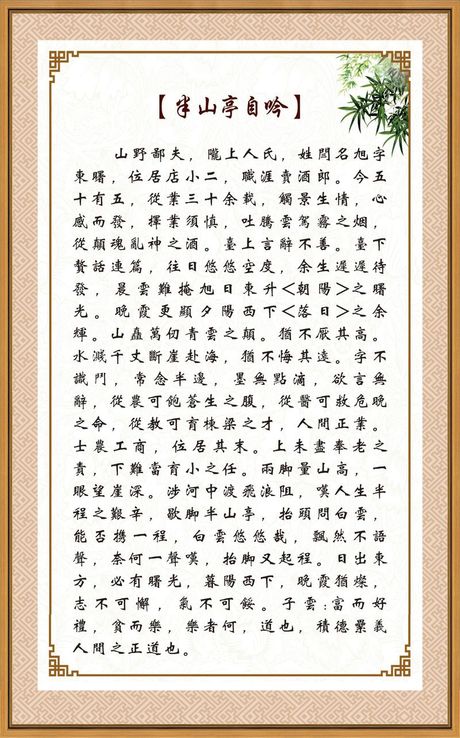 【半山亭自吟】
山野鄙夫，隴上人氏，姓閆名旭字
東曙，位居店小二，職涯賣酒郎。今五
十有五，從業三十余載，觸景生情，心
感而發，擇業須慎，吐騰雲駕霧之烟，
從顛魂亂神之酒。臺上言辭不善。臺下
贅話連篇，往日悠悠空度，余生遲遲待
發，晨雲難掩旭日東升<朝陽>之曙
光。晚霞更顯夕陽西下<落日>之余
輝。山矗萬仞青雲之顛。猶不厭其高。
水濺千丈斷崖赴海，猶不悔其遠。字不
識門，常念半邊，墨無點滴，欲言無
辭，從農可飽蒼生之腹，從醫可救危晚
之命，從教可育棟梁之才，人間正業。
士農工商，位居其末。上未盡奉老之
責，下難當育小之任。兩脚量山高，一
眼望崖深。涉河中渡飛浪阻，嘆人生半
程之艱辛，歇脚半山亭，抬頭問白雲，
能否携一程，白雲悠悠哉，飄然不語
聲，奈何一聲嘆，抬脚又起程。日出東
方，必有曙光，暮陽西下，晚霞猶燦，
志不可懈，氣不可餒。子雲:富而好
禮，貧而樂，樂者何，道也，積德纍義
人間之正道也。